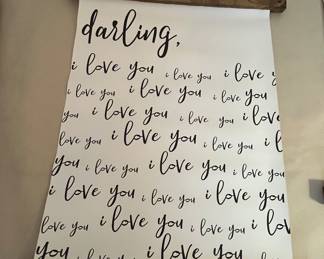 darling,
i love you i love you i love y
i love you i love you i love you
you i love you i love you i love
i love you i love you i love you
you i love you i love you i love you
i love you i love you i love you
i love you i love you i love you i love
you i love you i love you